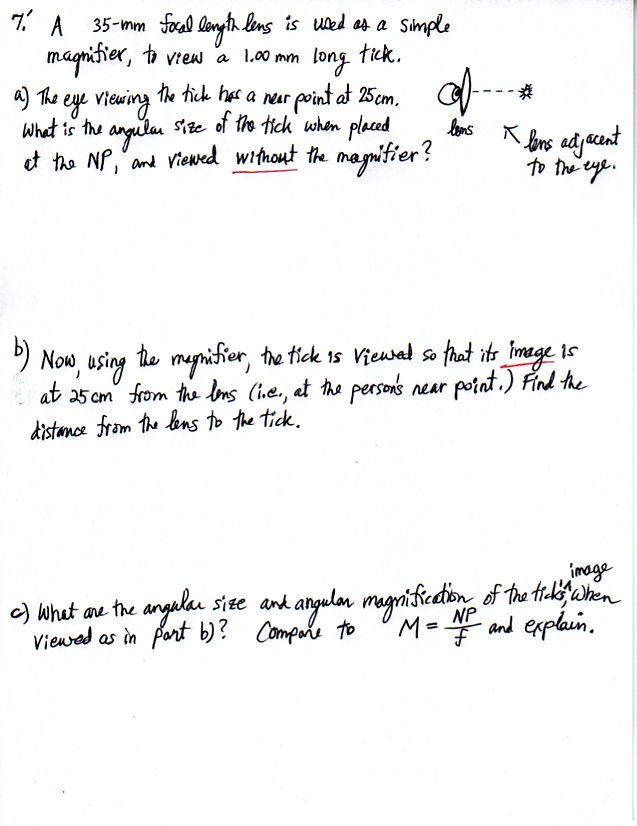 7. A 35-mm focal length lens is used as a simple
magnifier, to view a 1.00 mm long tick.
a) The eye viewing the tick has a near point at 25cm.
What is the angular size of the tick when placed
at the NP, and viewed without the magnifier?
lens
lens adjacent
to the eye.
b) Now, using the magnifier, the tick is viewed so that its image is
at 25 cm from the lens (i.e., at the person's near point.) Find the
distance from the lens to the tick.
image
c) What are the angular size and angular magnification of the tick's, when
viewed as in part b)? Compare to M = NP/f and explain.